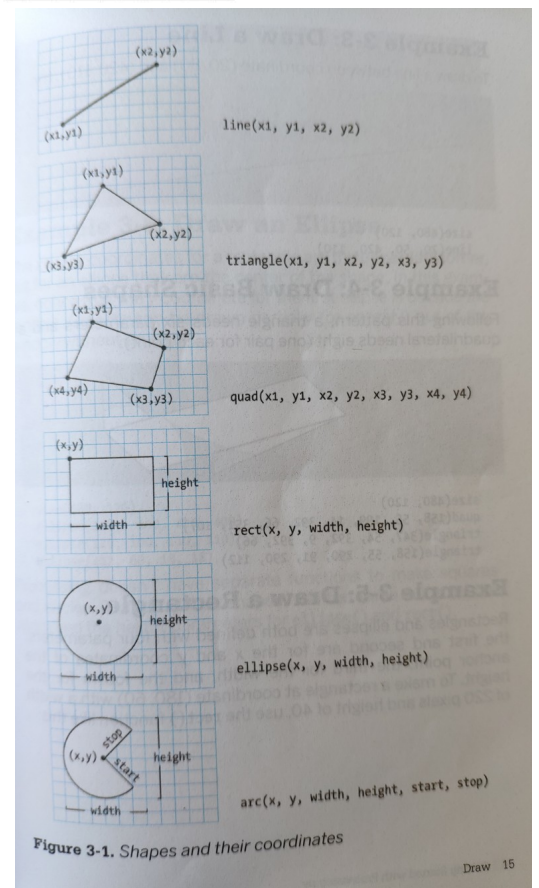 (x2,y2)
(x1,y1)
line(x1, y1, x2, y2)
(x1,y1)
(x2,y2)
(x3,y3)
triangle(x1, y1, x2, y2, x3, y3)
(x1,y1)
(x2,y2)
(x4,y4)
(x3,y3)
quad(x1, y1, x2, y2, x3, y3, x4, y4)
(x,y)
height
width
rect(x, y, width, height)
(x,y)
height
width
ellipse(x, y, width, height)
stop
(x,y)
start
height
width
arc(x, y, width, height, start, stop)
Figure 3-1. Shapes and their coordinates
Draw 15